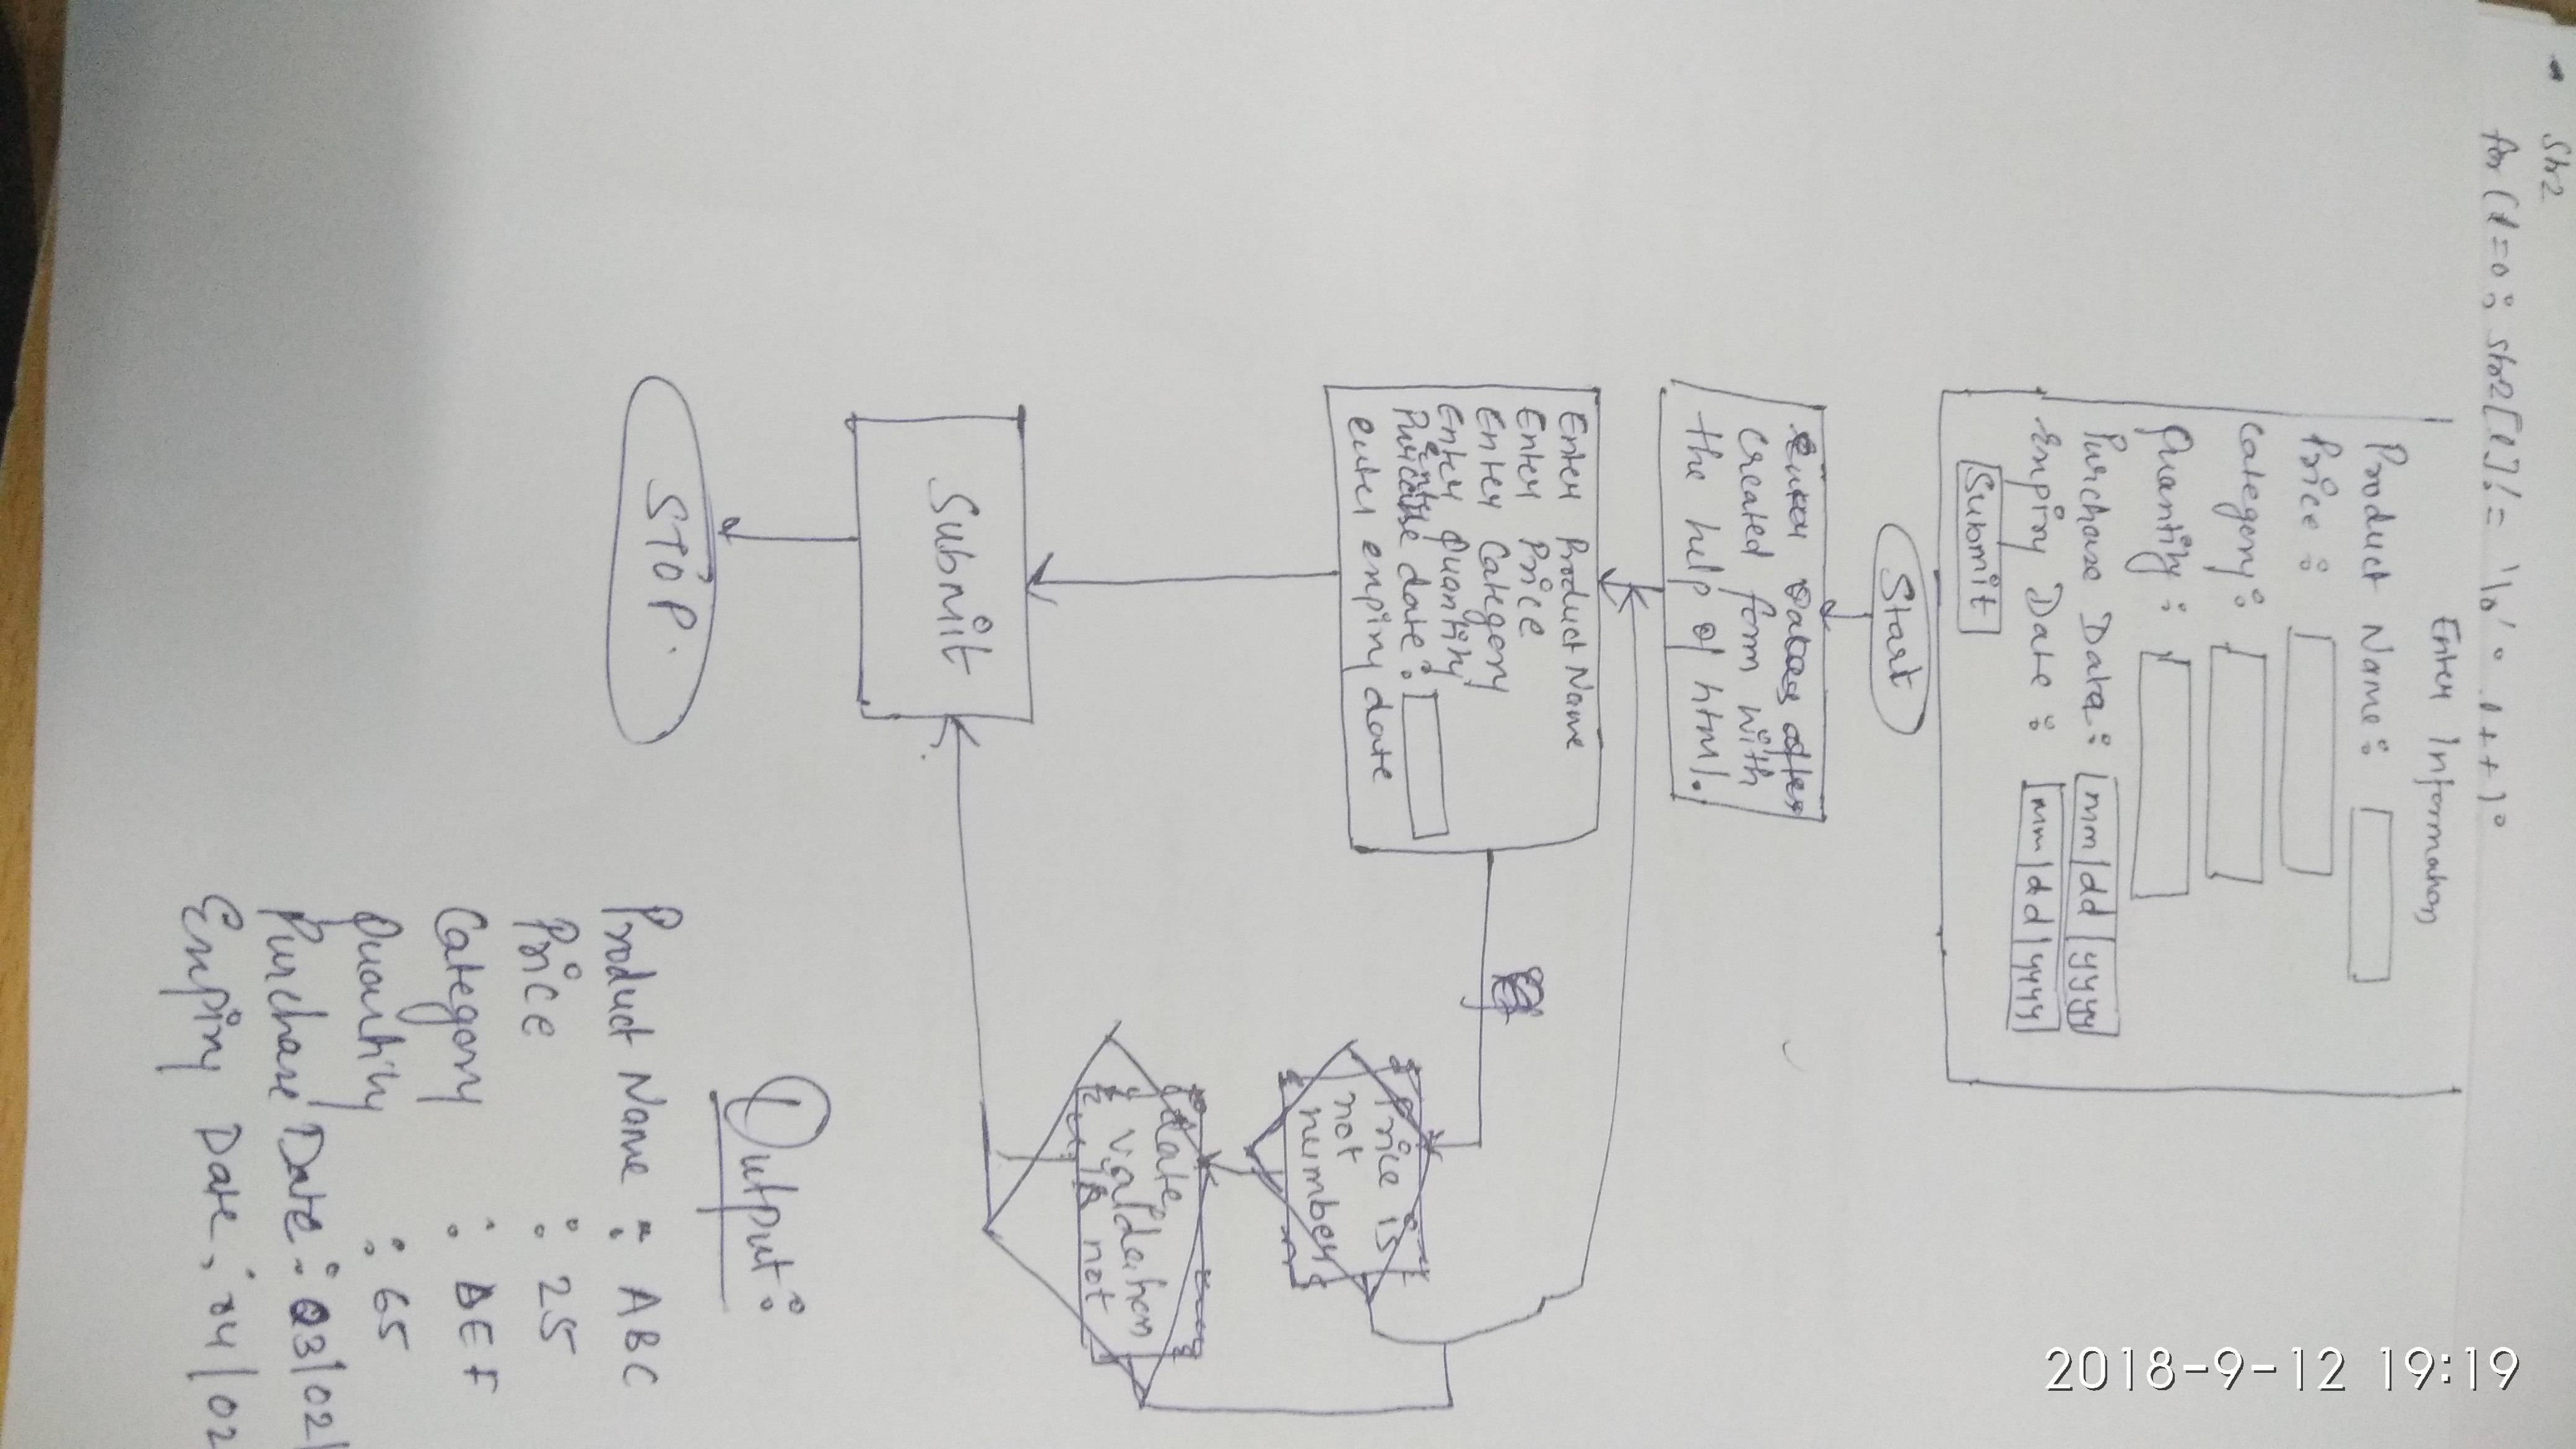 Str2
for(i=0; str2[i]!='\0'; i++);
Enter Information
Product Name:
Price:
Category:
Quantity:
Purchase Date:
mm/dd/yyyy
Expiry Date:
mm/dd/yyyy
Submit
Start
created form with
the help of html.
Enter Product Name
Enter Price
Enter Category
Enter Quantity
Purchase date:
enter expiry date
Price is
not
number
date
validation
not
Submit
STOP.
Output:
Product Name: ABC
Price : 25
Category : DEF
Quantity : 65
Purchase Date: 03/02/
Expiry Date: 04/02
2018-9-12 19:19